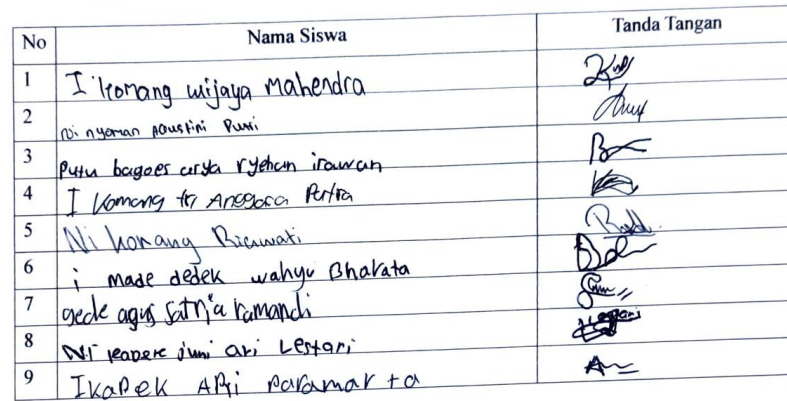 No Nama Siswa Tanda Tangan
1 I komang wijaya Mahendra
2 Ni nyoman Agustini Putri
3 Putu bagoes arya ryehan irawan
4 I Komang tri Anggara Partra
5 Ni komang Riawati
6 i made dedek wahyu Bharata
7 gede agus satria ramandi
8 Ni juni ari Lestari
9 I KaDek ARi paramarta